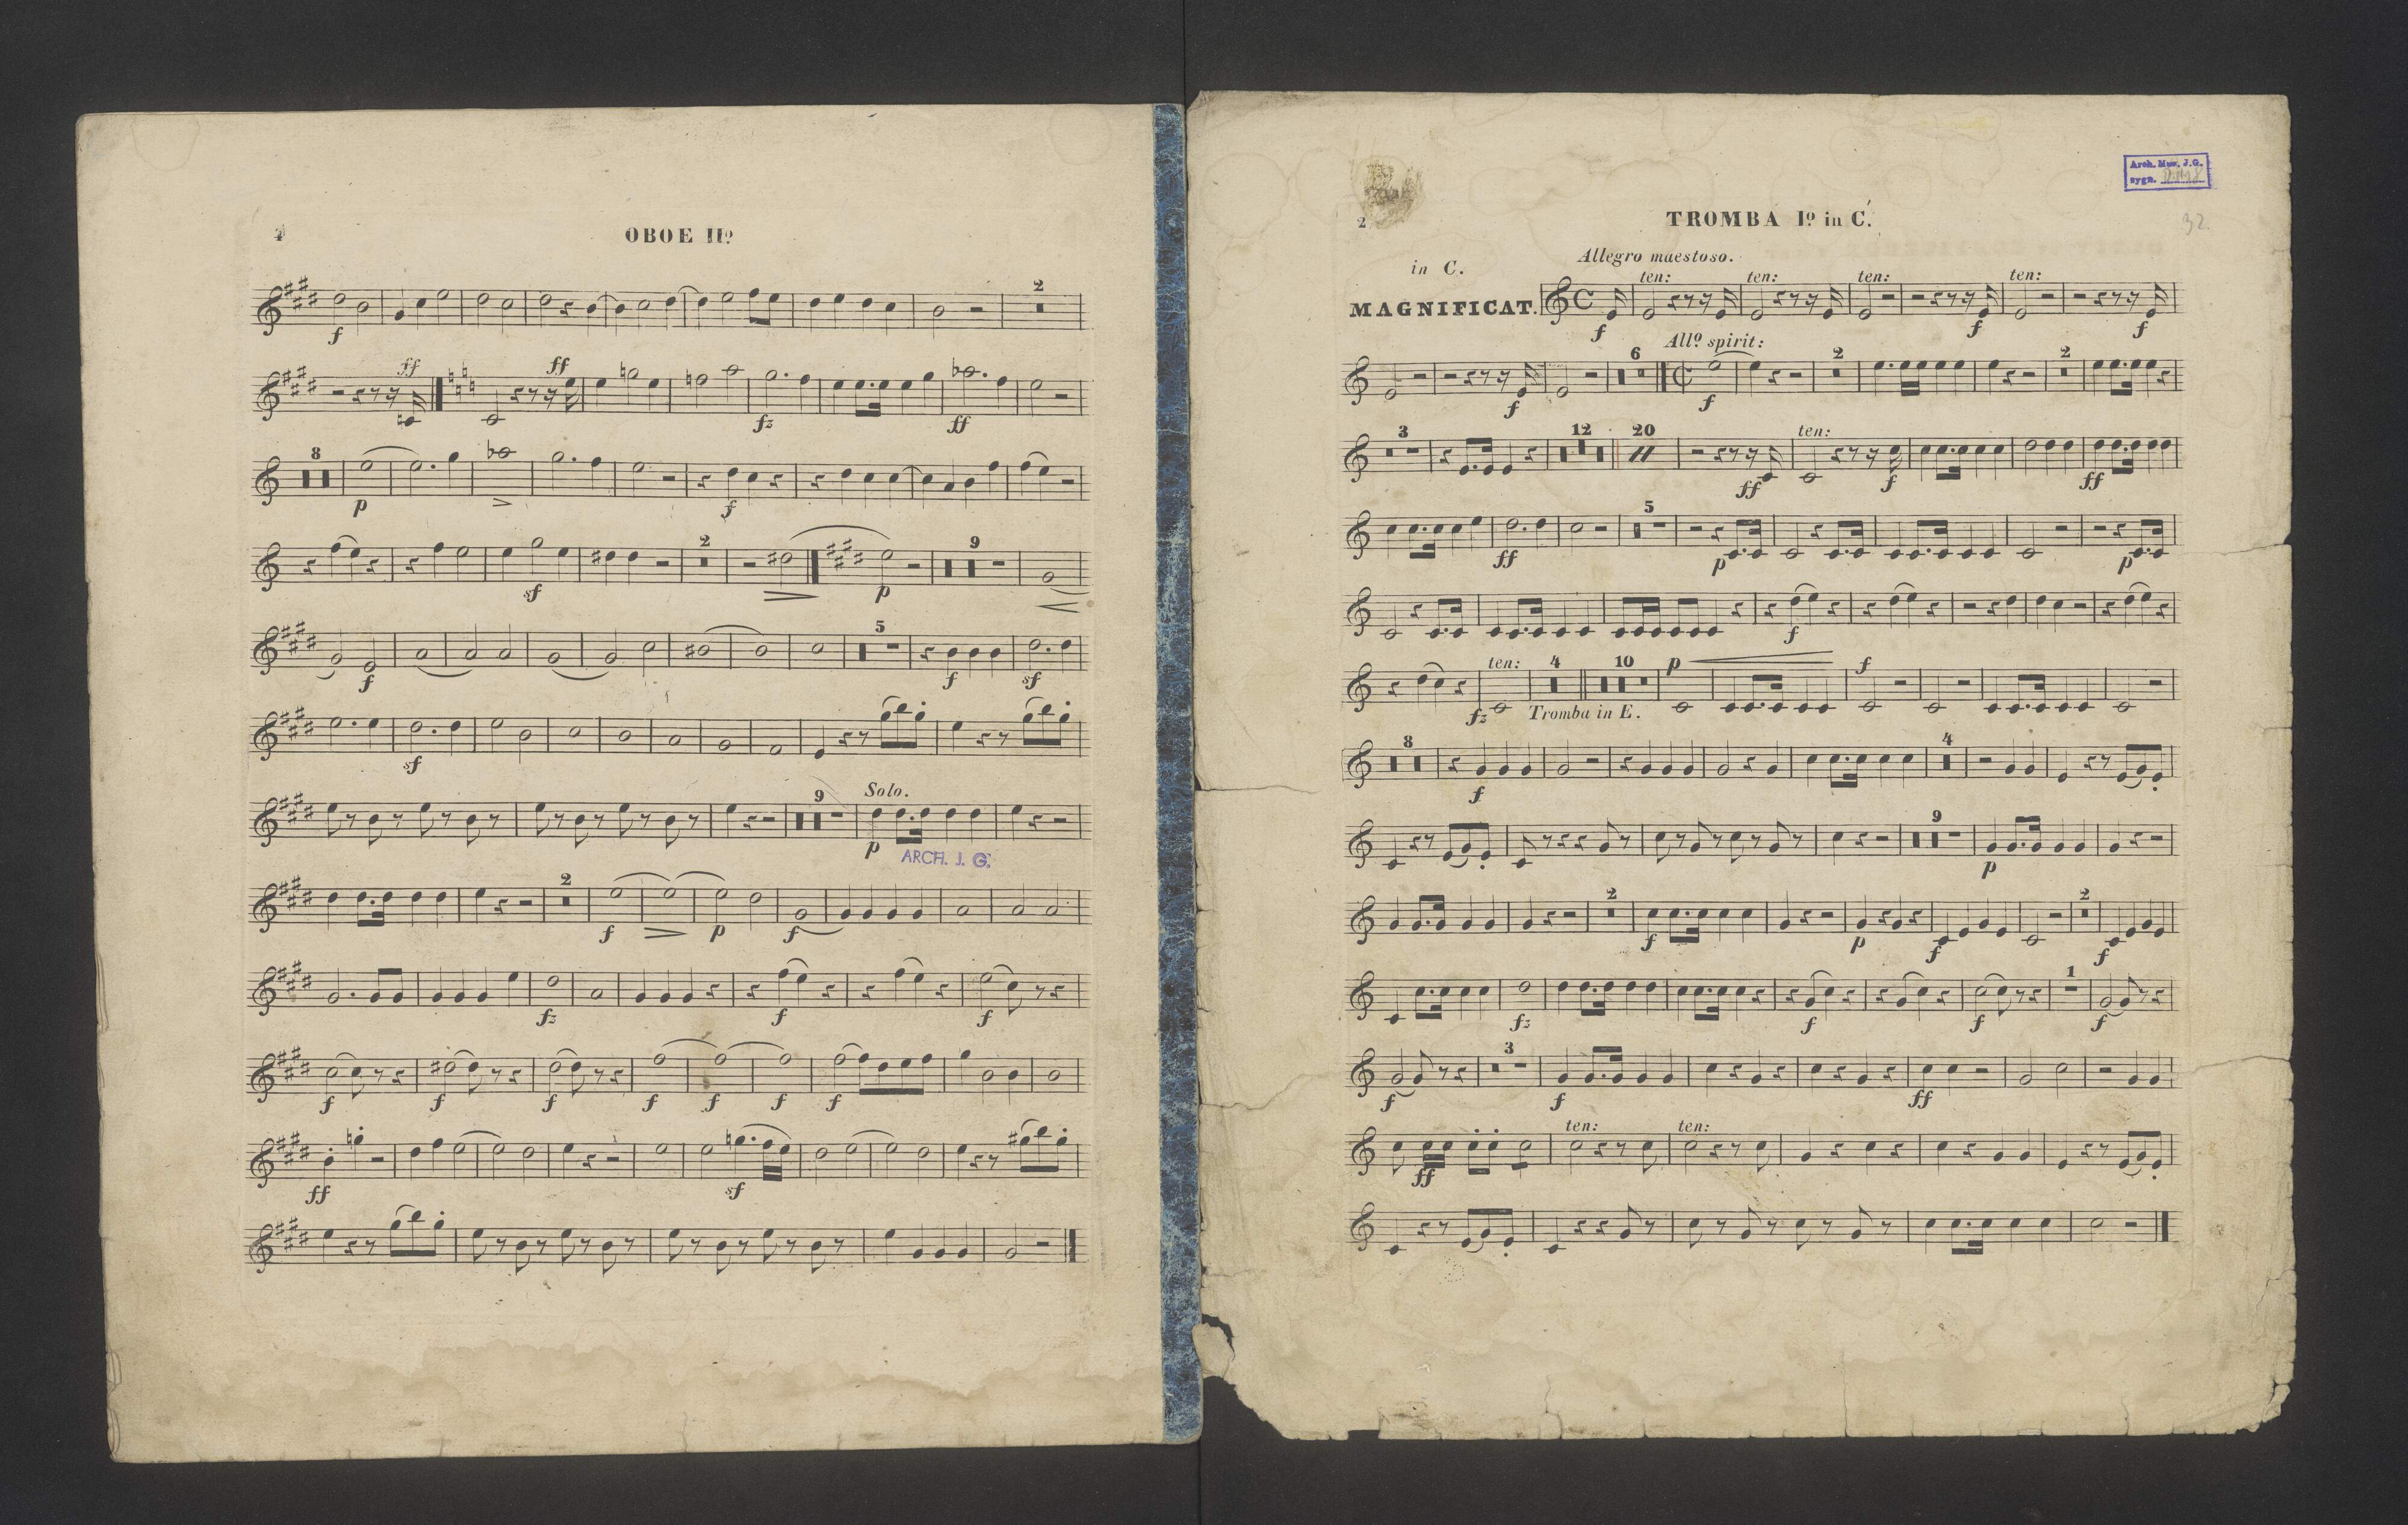 4
OBOE IIº
f
2
ff
ff
fz
ff
8
p
f
sf
2
p
9
f
5
f
sf
sf
9
Solo.
p
ARCH. J. G.
2
f
p
f
fz
f
f
f
f
f
f
f
f
f
ff
sf
Arch. Mus. J.G.
sygn.
32
2
TROMBA Iº in C.
in C.
Allegro maestoso.
ten:
ten:
ten:
ten:
MAGNIFICAT.
C
f
f
f
Allº spirit:
6
2
2
f
f
3
12
20
ten:
ff
f
ff
5
ff
p
p
f
ten:
4
10
p
f
fz
Tromba in E.
8
4
f
9
p
2
2
f
p
f
f
1
fz
f
f
f
3
f
f
ff
ten:
ten:
ff